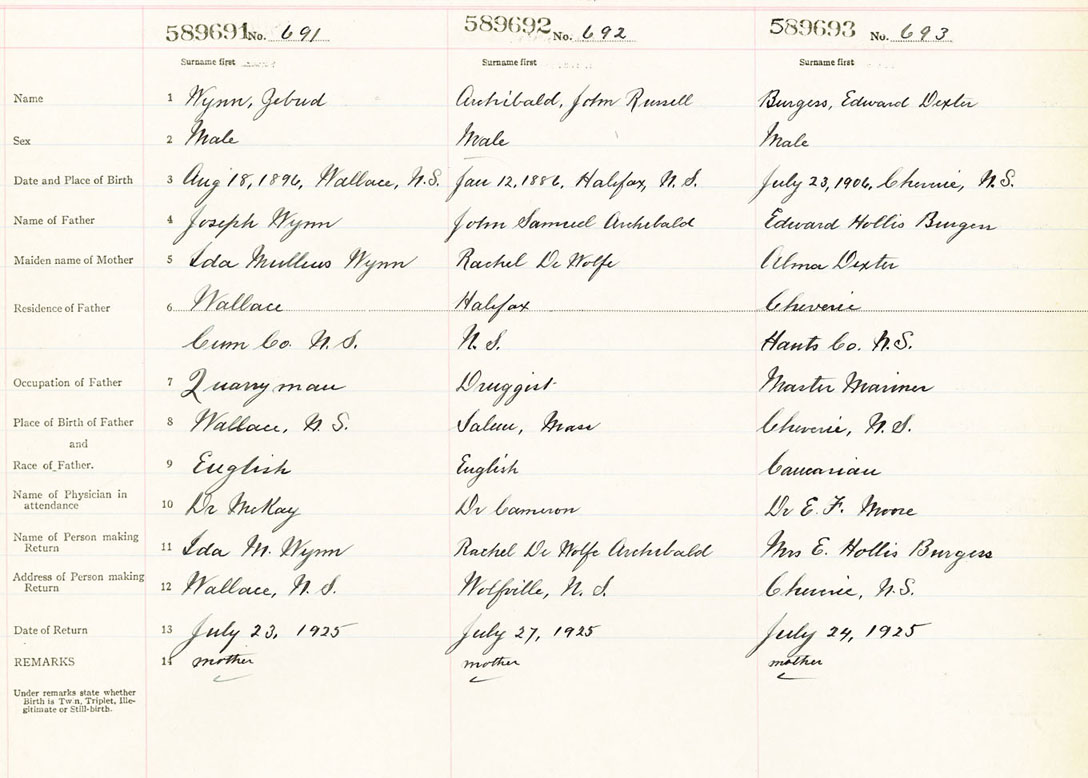 589691 No. 691 589692 No. 692 589693 No. 693
Surname first Surname first Surname first
Name 1 Wynn, Zebud Archibald, John Russell Burgess, Edward Dexter
Sex 2 Male Male Male
Date and Place of Birth 3 Aug 18, 1896, Wallace, N.S. Jan 12, 1886, Halifax, N.S. July 23, 1906, Cheverie, N.S.
Name of Father 4 Joseph Wynn John Samuel Archibald Edward Hollis Burgess
Maiden name of Mother 5 Ida Mullins Wynn Rachel De Wolfe Alma Dexter
Residence of Father 6 Wallace Halifax Cheverie
Cum Co. N.S. N.S. Hants Co. N.S.
Occupation of Father 7 Quarryman Druggist Master Mariner
Place of Birth of Father 8 Wallace, N.S. Salem, Mass Cheverie, N.S.
and
Race of Father. 9 English English Caucasian
Name of Physician in
attendance 10 Dr McKay Dr Cameron Dr E. F. Moore
Name of Person making
Return 11 Ida M. Wynn Rachel De Wolfe Archibald Mrs E. Hollis Burgess
Address of Person making
Return 12 Wallace, N.S. Wolfville, N.S. Cheverie, N.S.
Date of Return 13 July 23, 1925 July 27, 1925 July 24, 1925
REMARKS 14 mother mother mother
Under remarks state whether
Birth is Twin, Triplet, Ille-
gitimate or Still-birth.